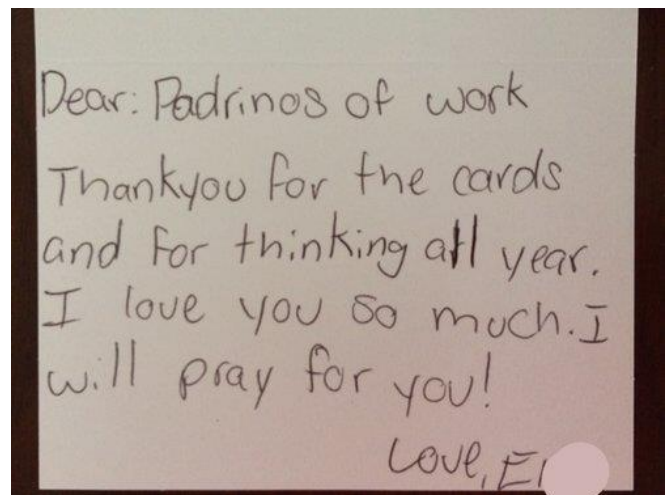 Dear: Padrinos of work
Thankyou for the cards
and for thinking all year.
I love you so much. I
will pray for you!
Love,